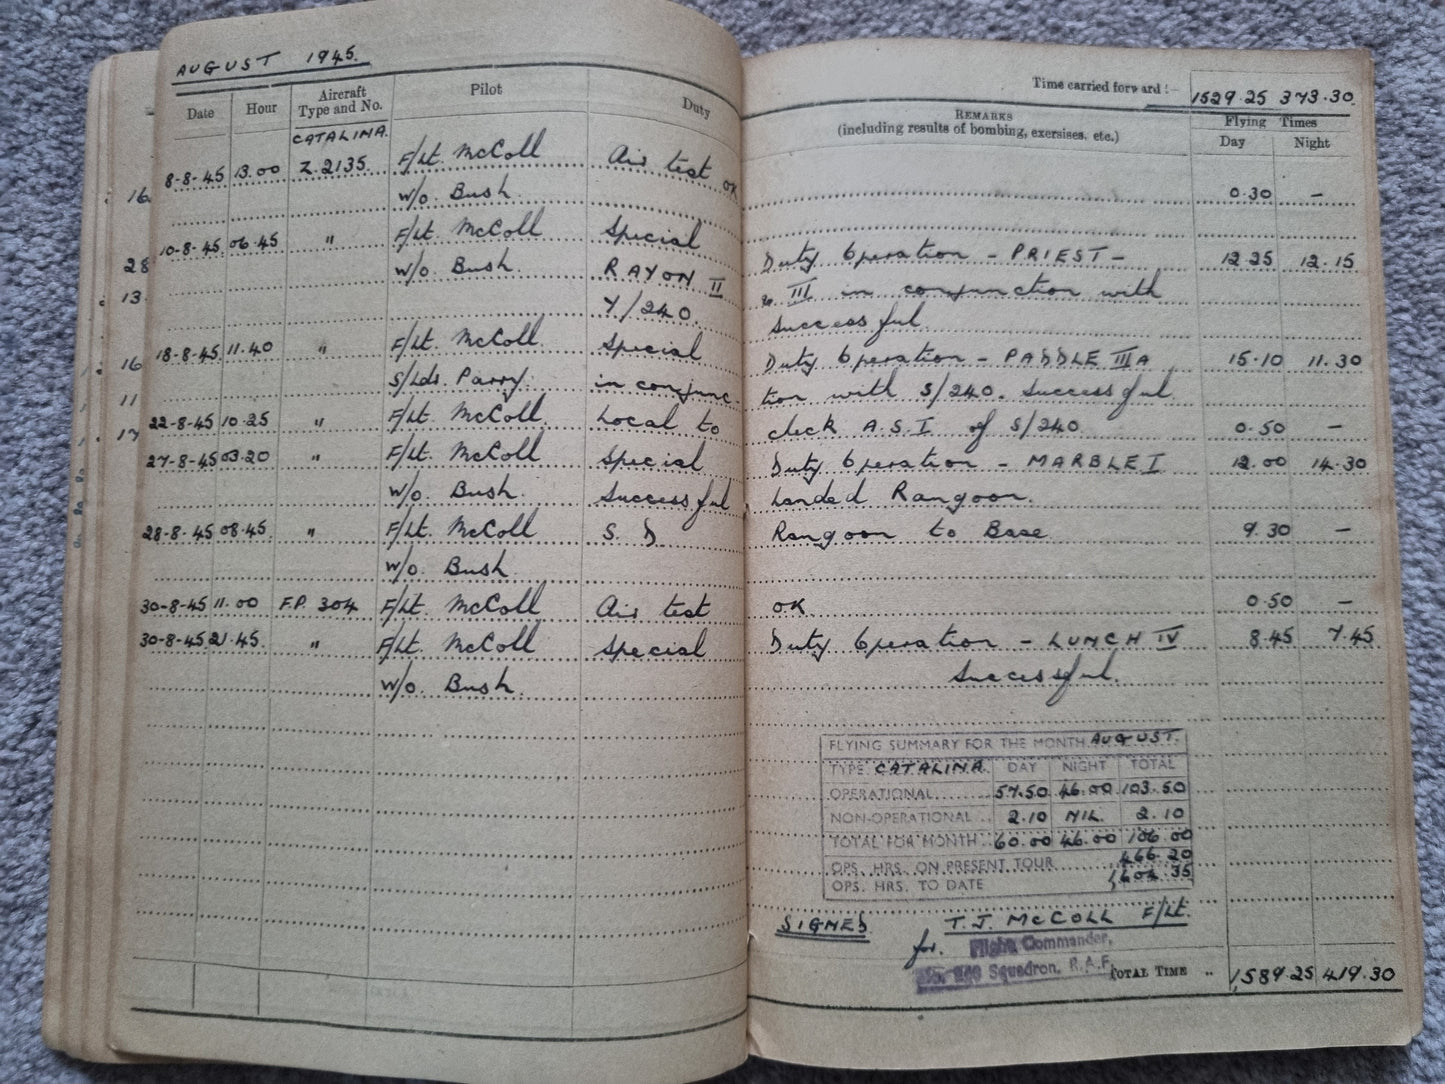 AUGUST 1945.
Time carried forward :— 1529.25 373.30
Date Hour Aircraft Type and No. Pilot Duty REMARKS (including results of bombing, exersises. etc.) Flying Times Day Night
CATALINA.
8-8-45 13.00 Z.2135. F/Lt. McColl Air test OK 0.30 —
W/O. Bush.
10-8-45. 06.45 " F/Lt. McColl Special Duty Operation - PRIEST - 12.25 12.15
W/O. Bush. RAYON II & III in conjunction with
Y/240. Successful.
18-8-45. 11.40 " F/Lt. McColl Special Duty Operation - PADDLE IIIA 15.10 11.30
S/Ldr. Parry. in conjunc- tion with S/240. Successful
22-8-45 10.25 " F/Lt. McColl Local to check A.S.I of S/240 0.50 —
27-8-45 03.20 " F/Lt. McColl Special Duty Operation - MARBLE I 12.00 14.30
W/O. Bush. Successful Landed Rangoon.
28-8-45 08.45. " F/Lt. McColl S. D Rangoon to Base 9.30 —
W/O. Bush.
30-8-45 11.00 F.P. 304 F/Lt. McColl Air test OK. 0.50 —
30-8-45. 21.45. " F/Lt. McColl Special Duty Operation - LUNCH IV 8.45 7.45
W/O. Bush. Successful.
FLYING SUMMARY FOR THE MONTH AUGUST.
TYPE CATALINA. DAY NIGHT TOTAL
OPERATIONAL 57.50 46.00 103.50
NON-OPERATIONAL 2.10 NIL. 2.10
TOTAL FOR MONTH 60.00 46.00 106.00
OPS. HRS. ON PRESENT TOUR 466.20
OPS. HRS. TO DATE 1,604.35
SIGNED T.J. McCOLL F/Lt.
for. Flight Commander,
No. 240 Squadron, R.A.F.
TOTAL TIME .. 1,589.25 419.30